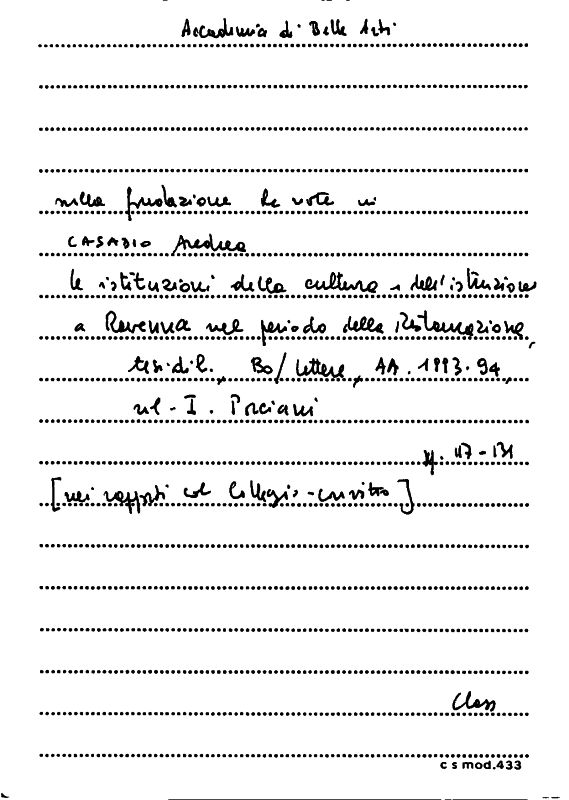 Accademia di Belle Arti
sulla fondazione le note in
CASADIO Andrea
le istituzioni della cultura e dell'istruzione
a Ravenna nel periodo della Restaurazione,
tesi di l., Bo/Lettere, AA. 1993-94,
rel. I. Porciani
pp. 117-131
[nei rapporti col Collegio-convitto]
Class
c s mod.433